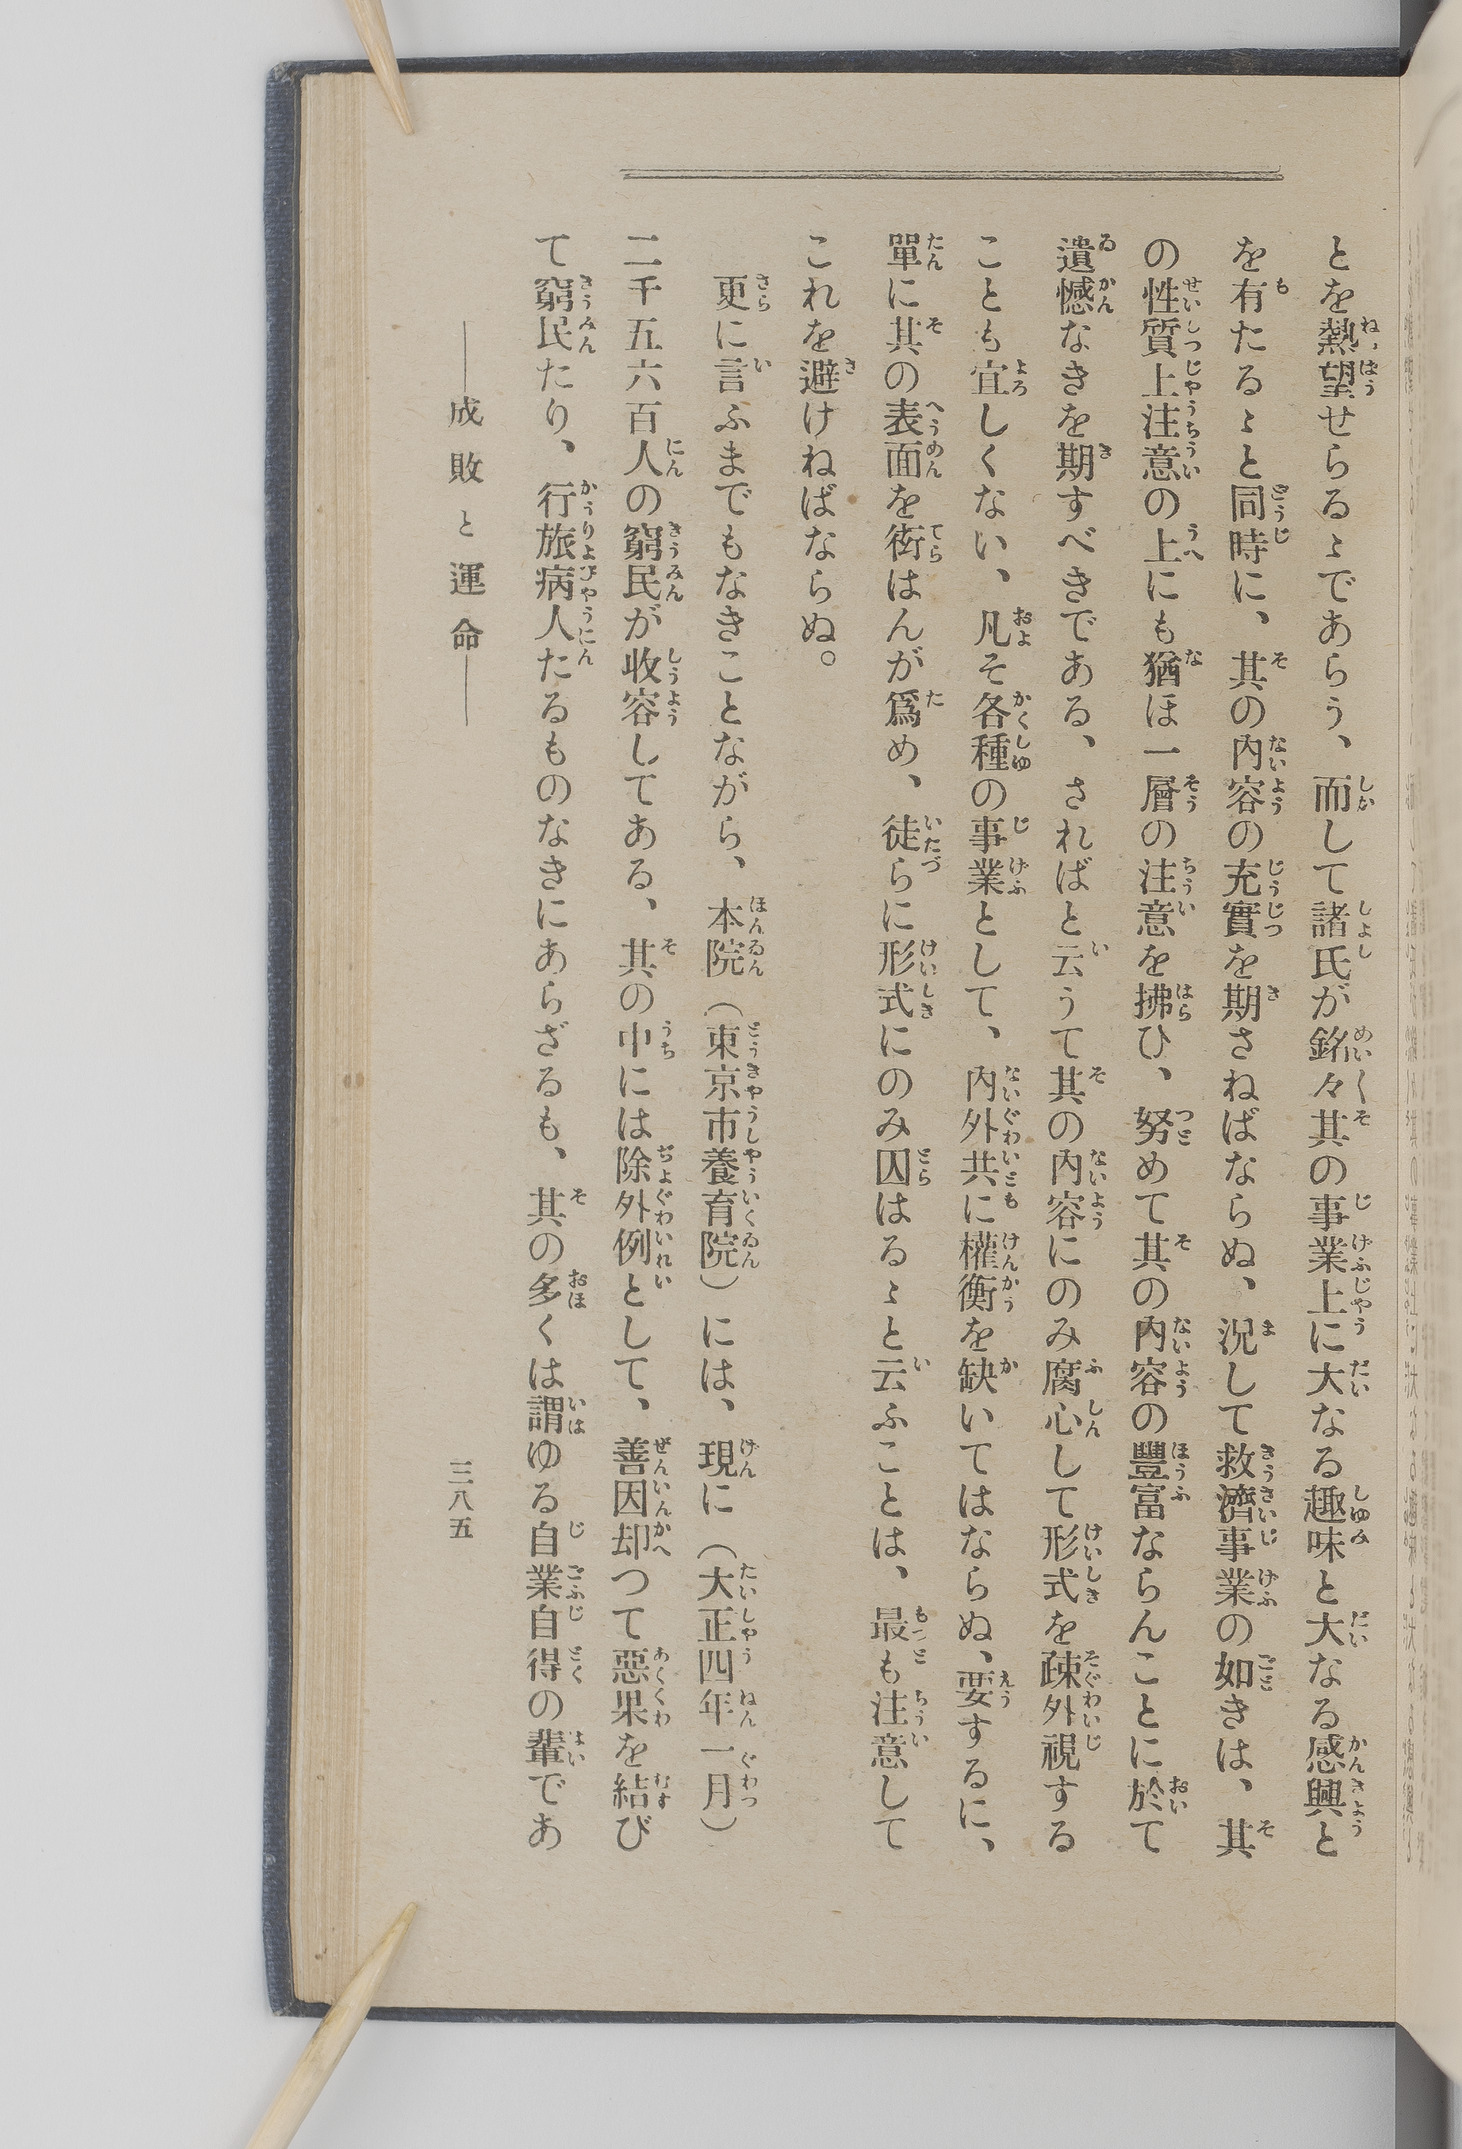 とを熱望せらるゝであらう、而して諸氏が銘々其の事業上に大なる趣味と大なる感興と
を有たるゝと同時に、其の内容の充實を期さねばならぬ、況して救濟事業の如きは、其
の性質上注意の上にも猶ほ一層の注意を拂ひ、努めて其の内容の豐富ならんことに於て
遺憾なきを期すべきである、さればと云うて其の内容にのみ腐心して形式を疎外視する
ことも宜しくない、凡そ各種の事業として、内外共に權衡を缺いてはならぬ、要するに、
單に其の表面を衒はんが爲め、徒らに形式にのみ囚はるゝと云ふことは、最も注意して
これを避けねばならぬ。
更に言ふまでもなきことながら、本院（東京市養育院）には、現に（大正四年一月）
二千五六百人の窮民が收容してある、其の中には除外例として、善因却つて惡果を結び
て窮民たり、行旅病人たるものなきにあらざるも、其の多くは謂ゆる自業自得の輩であ
――成敗と運命――
三八五